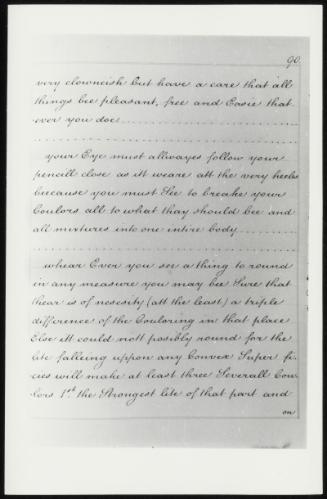 90.
very clowneish but have a care that all
things bee pleasant, free and Easie that
ever you doe
your Eye must allwayes follow your
pencill close as itt weare att the very heeles
because you must See to breake your
Coulors all to what thay should bee and
all mixtures into one intire body
whear Ever you see a thing to round
in any measure you may bee Sure that
thear is of nesesity (att the least) a triple
difference of the Couloring in that place
Else itt could nott posibly round for the
lite falleing uppon any Convex Super fi-
cies will make at least three Severall Cou-
lors 1st. the Strongest lite of that part and
on